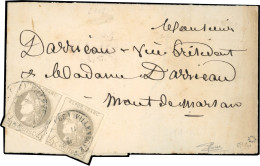 Monsieur
Darrieau - Vice Président
& Madame Darrieau
Mont de Marsan